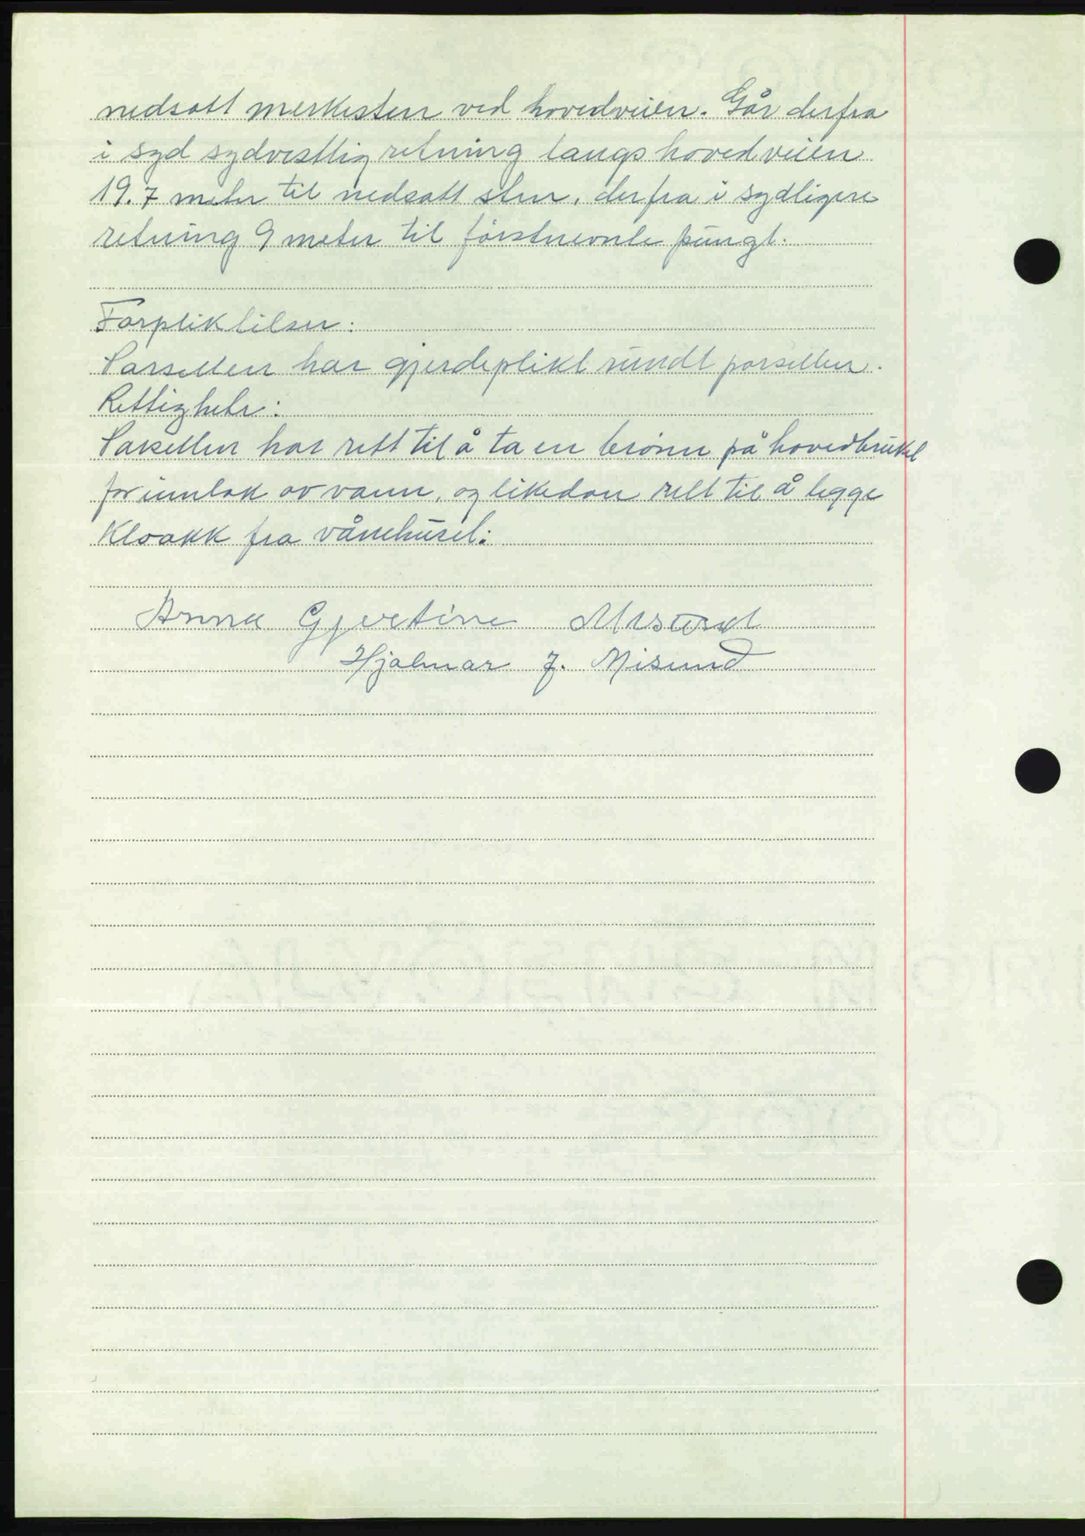 nedsatt merkesten ved hovedveien. Går derfra
i syd sydvestlig retning langs hovedveien
19.7 meter til nedsatt sten, derfra i sydligere
retning 9 meter til førstnevnte pungt.
Forpliktilser:
Parsellen har gjerdeplikt rundt parsellen.
Rettigheter:
Parsellen har rett til å ta en brønn på hovedbruket
for inntak av vann, og likedan rett til å legge
Kloakk fra vånehuset.
Anna Gjertine Misund
Hjalmar J. Misund